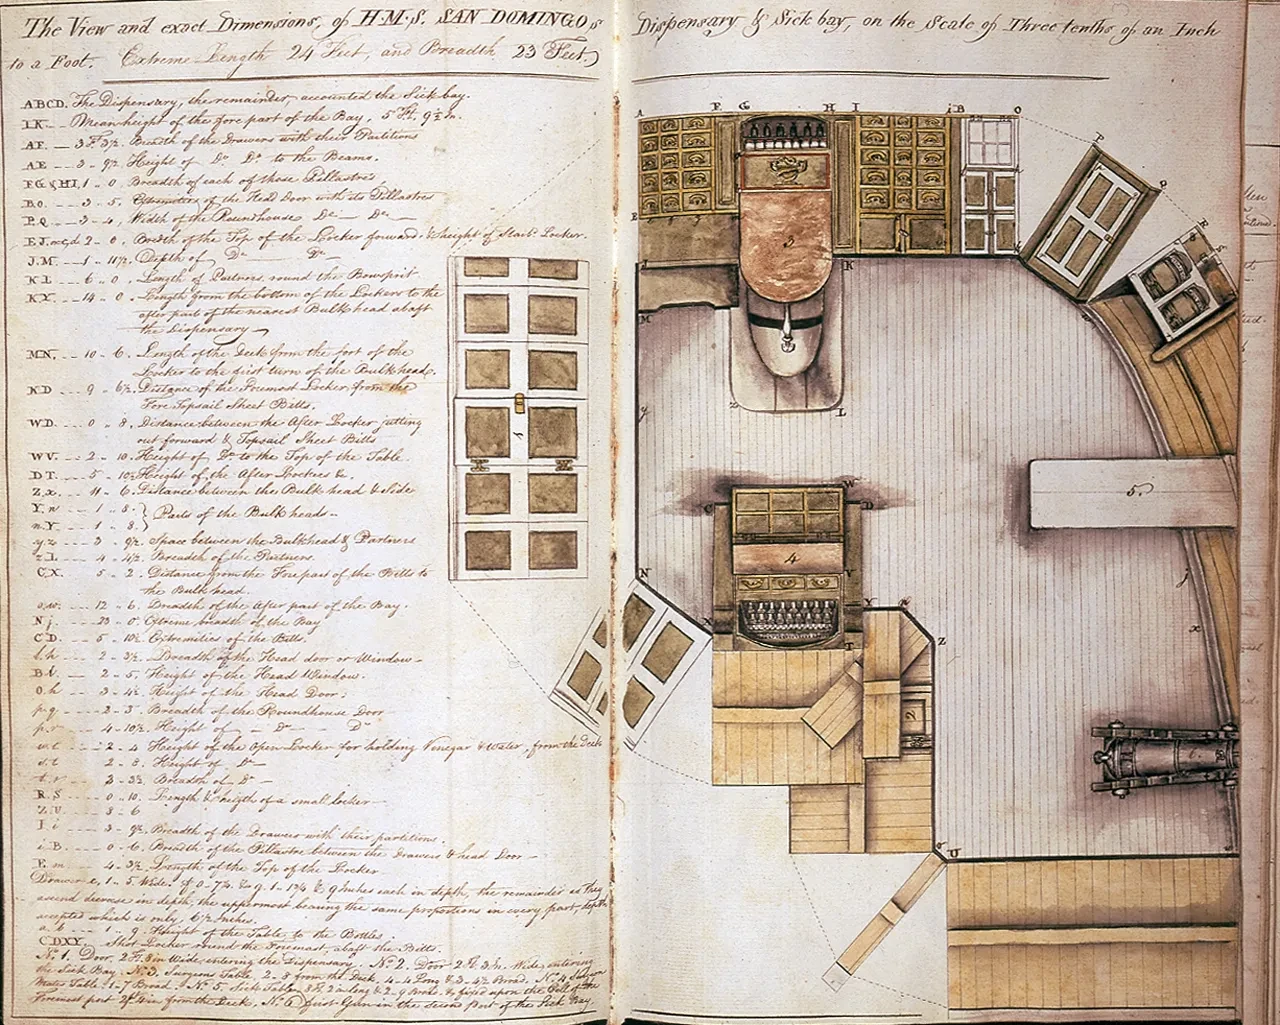 The View and exact Dimensions, of H.M.S. SAN DOMINGO,s Dispensary & Sick bay, on the Scale of Three tenths of an Inch
to a Foot. Extreme Length 24 Feet, and Breadth 23 Feet.
ABCD. The Dispensary, the remainder, accounted the Sick bay.
I.K. Mean height of the fore part of the Bay, 5 Ft, 9½ In.
AF. 3 F. 3½. Breadth of the Drawers with their Partitions
AE 3 9½ Height of Do Do to the Beams.
FG & HI, 1 .. 0. Breadth of each of those Pillastres,
B.O. 3 5. Extremities of the Head Door with its Pillastres
P.Q. 3 - 4, Width of the Roundhouse Do Do
2 .. 0. Bredth of the Top of the Locker forward. & height of Starbd Locker.
J.M. 1 - 11½. Depth of Do Do
K.L 6 .. 0. Length of Partners round the Bowsprit
KY. 14 .. 0. Length from the bottom of the Lockers to the
after part of the nearest Bulkhead abaft
the Dispensary
MN. 10 - 6. Length of the Deck from the foot of the
Locker to the first turn of the Bulkhead.
K.D 9 6½. Distance of the Foremost Locker, from the
Fore Topsail Sheet Bitts.
W.D. 0 .. 8. Distance between the After Locker jutting
out forward & Topsail Sheet Bitts
WV. 2 .. 10. Height of Do to the Top of the Table.
DT. 5 .. 10. Height of the After Lockers &c.
Z.x. 11 .. 6. Distance between the Bulk head & Side
Y.n 1 .. 8. } Parts of the Bulk heads
n.Y. 1 .. 8.
y z 3 9½. Space between the Bulkhead & Partners
z.L 4 4½. Breadth of the Partners.
C.X. 5 .. 2. Distance from the Fore part of the Bitts to
the Bulk head.
o.w. 12 .. 6. Breadth of the After part of the Bay.
N j. 23 .. 0. Extreme breadth of the Bay
C.D. 5 .. 10½. Extremities of the Bitts.
2 .. 3½. Breadth of the Head door or Window
2 .. 5. Height of the Head Window.
O.h 3 - 4½. Height of the Head Door.
p.q 2 - 3. Breadth of the Roundhouse Door
p.r 4 - 10½. Height of Do Do
2 .. 4 Height of the Open Locker for holding Vinegar & Water, from the Deck
s.t 2 .. 8. Height of Do
t.r 3 - 3½. Breadth of Do
R.S 0 .. 10. Length & heigth of a small locker
Z.U. 8 .. 6
I.i 3 - 9½. Breadth of the Drawers with their partitions.
i.B. 0 .. 6. Breadth of the Pillastre between the Drawers & head Door
E.m 4 .. 3½. Length of the Top of the Locker
Drawers, 1 .. 5. Wide, & 0 - 7½ & 9 Inches each in depth, the remainder as they
ascend decrease in depth, the uppermost bearing the same proportions in every part, depth
accepted which is only 6½ Inches.
a.b 1 .. 9. Height of the Table to the Bottles.
C.D.X.Y. Shot Locker round the Foremast, abaft the Bitts.
No. 1. Door, 2 Ft. 8 in Wide entering the Dispensary. No. 2. Door 2 Ft. 3 In. Wide, entering
the Sick Bay. No. 3. Surgeons Table, 2 - 8 from the Deck, 4 - 4 Long & 3 - 4½ Broad. No. 4
Mates Table 1 - 7 Broad. No. 5. Sick Table, & fixed upon the
Foremost part from the Deck. No. 6, first Gun in the second Port of the Sick Bay.
A F G H I iB O
P
Q
R
S
E
J
K
M
y
z L
W
C D
4
V
3
5.
N
X
Y
n
Z
T
j
x
2
U